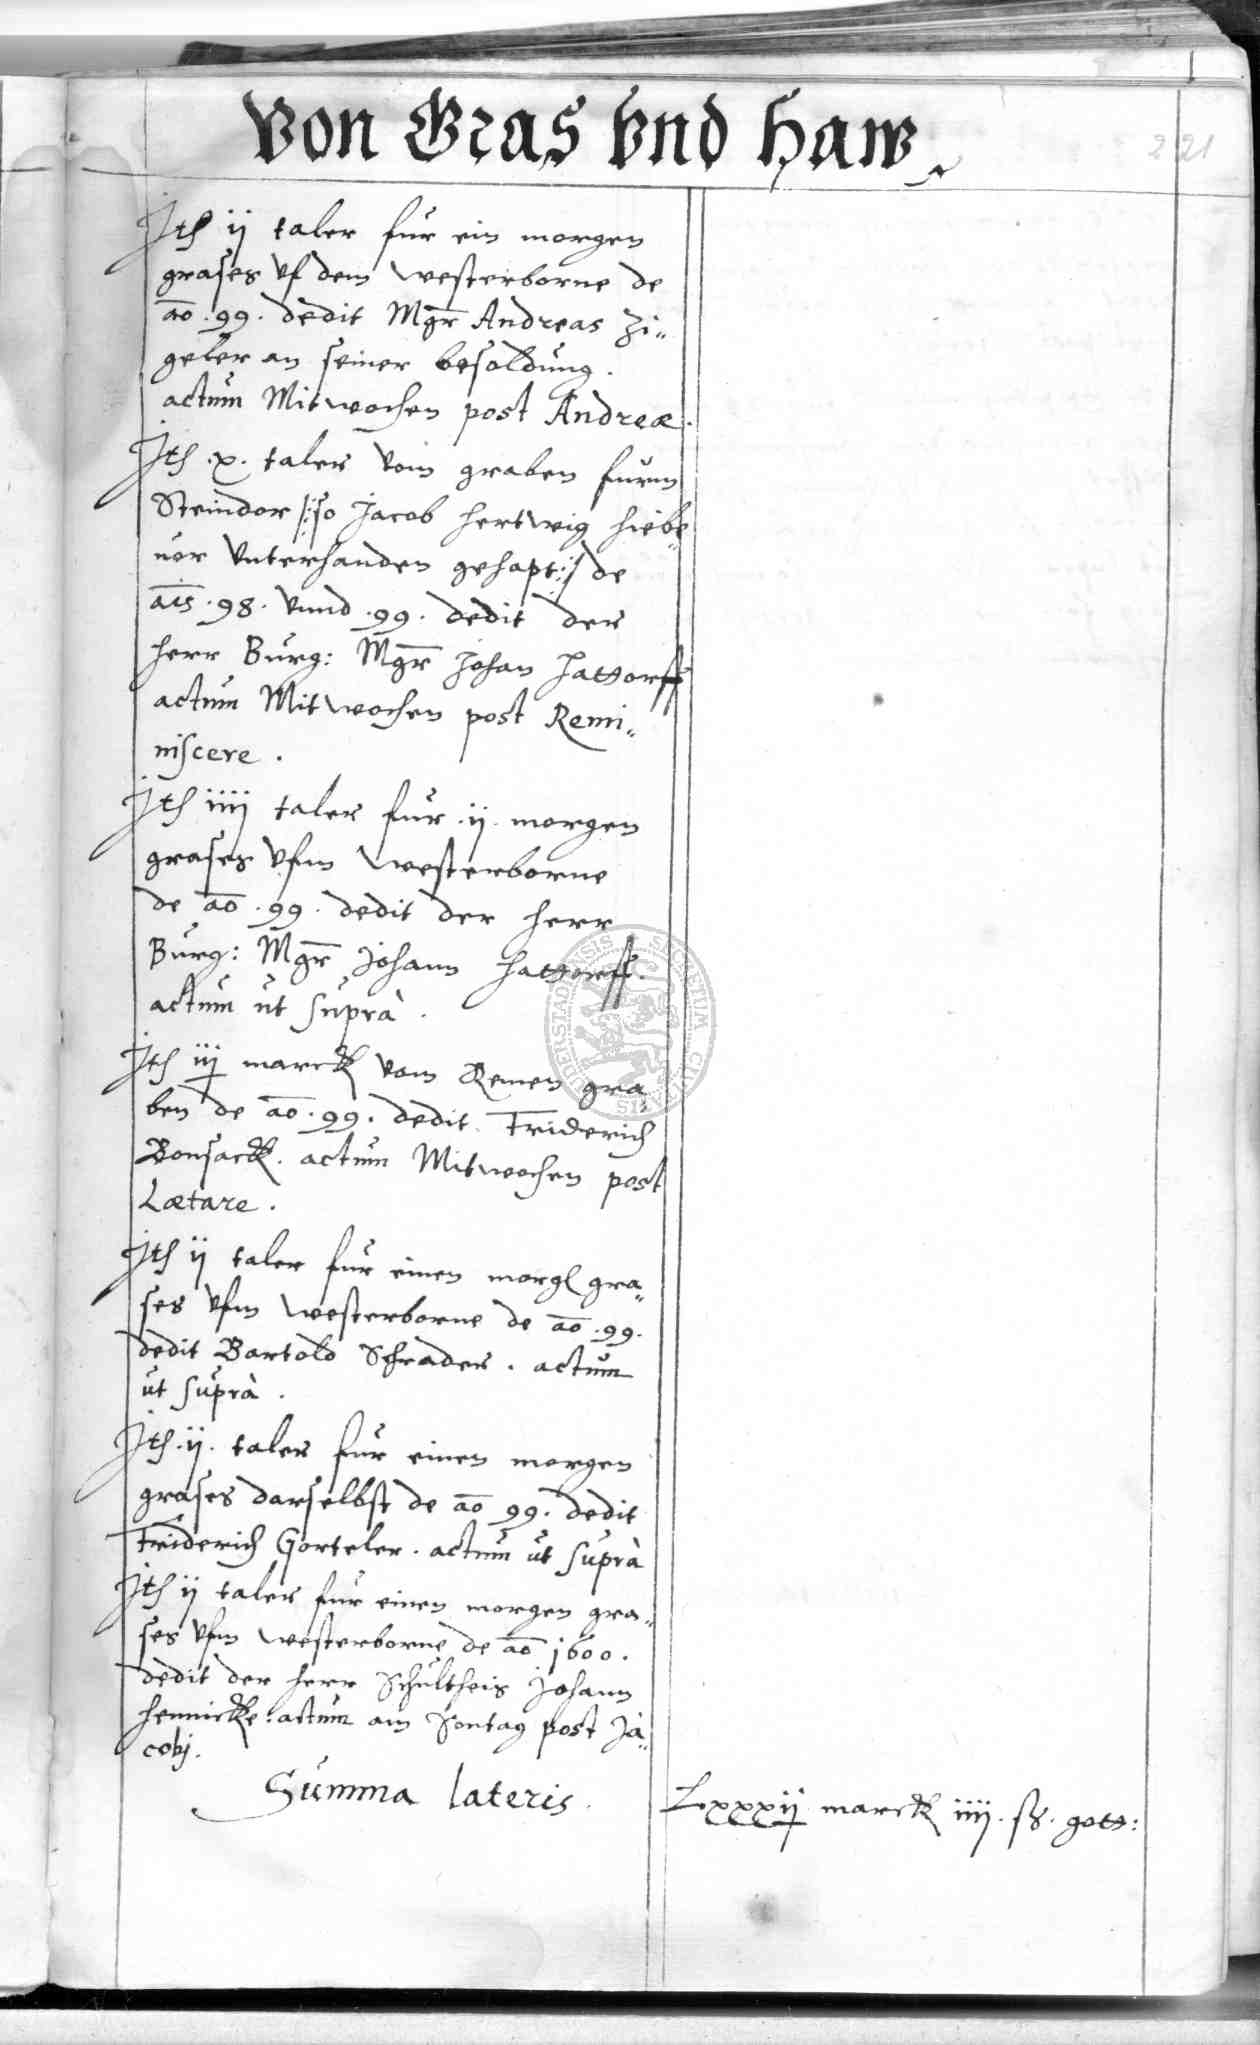 Von Gras vnd Haw
221
Jtẽ ij taler fur ein morgen
grases vf dem Westerborne de
ao. 99. dedit Mgr Andreas Zi„
geler an seiner besoldung.
actum Mitwochen post Andreæ.
Jtẽ .x. taler vom graben furm
Steindor /:so Jacob Hertwig hiebe„
uor vnterhanden gehapt:/ de
ais. 98. vnnd .99. dedit der
Herr Burg: Mgr Johan Hattorff
actum Mitwochen post Remi„
niscere.
Jtẽ iiij taler fur .ij. morgen
grases vfm Westerborne
de ao .99. dedit der Herr
Burg: Mgr Johann Hattorff.
actum ut suprà.
Jtẽ iij marck vom Remen gra„
ben de ao. 99. dedit. Friderich
Bonsack. actum Mitwochen post
Lætare.
Jtẽ ij taler fur einen morg gra„
ses vfm Westerborne de ao .99.
dedit Bartold Schrader. actum
ut suprà.
Jtẽ .ij. taler fur einen morgen
grases darselbst de ao 99. dedit
Friderich Gorteler. actum ut suprà
Jtẽ ij taler fur einen morgen gra„
ses vfm Westerborne de ao 1600.
dedit der Herr Schultheis Johann
Hennicke. actum am Sontag post Ja„
cobj.
Summa lateris. Lxxxij marck iiij. ß. gott:
SECRETUM CIVITATIS DUDERSTADIENSIS